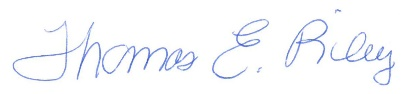 Thomas E. Riley